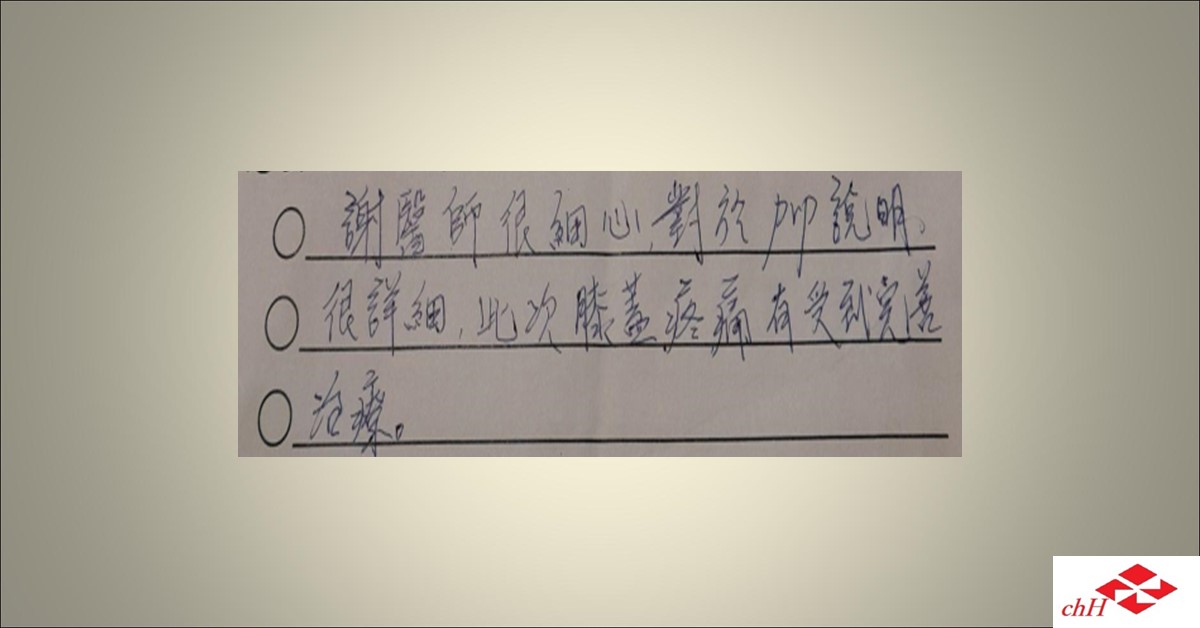 謝醫師很細心,對於 說明。
很詳細,此次膝蓋疼痛有受到完善
治療。
chH